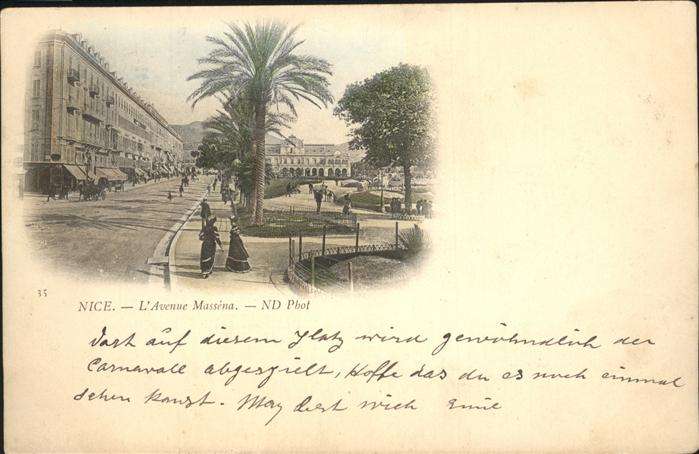 35
NICE. — L'Avenue Masséna. — ND Phot
dort auf diesem Platz wird gewöhndlich der
Carnavall abgespielt, Hoffe das du es noch einmal
sehen kanst. mich Emile